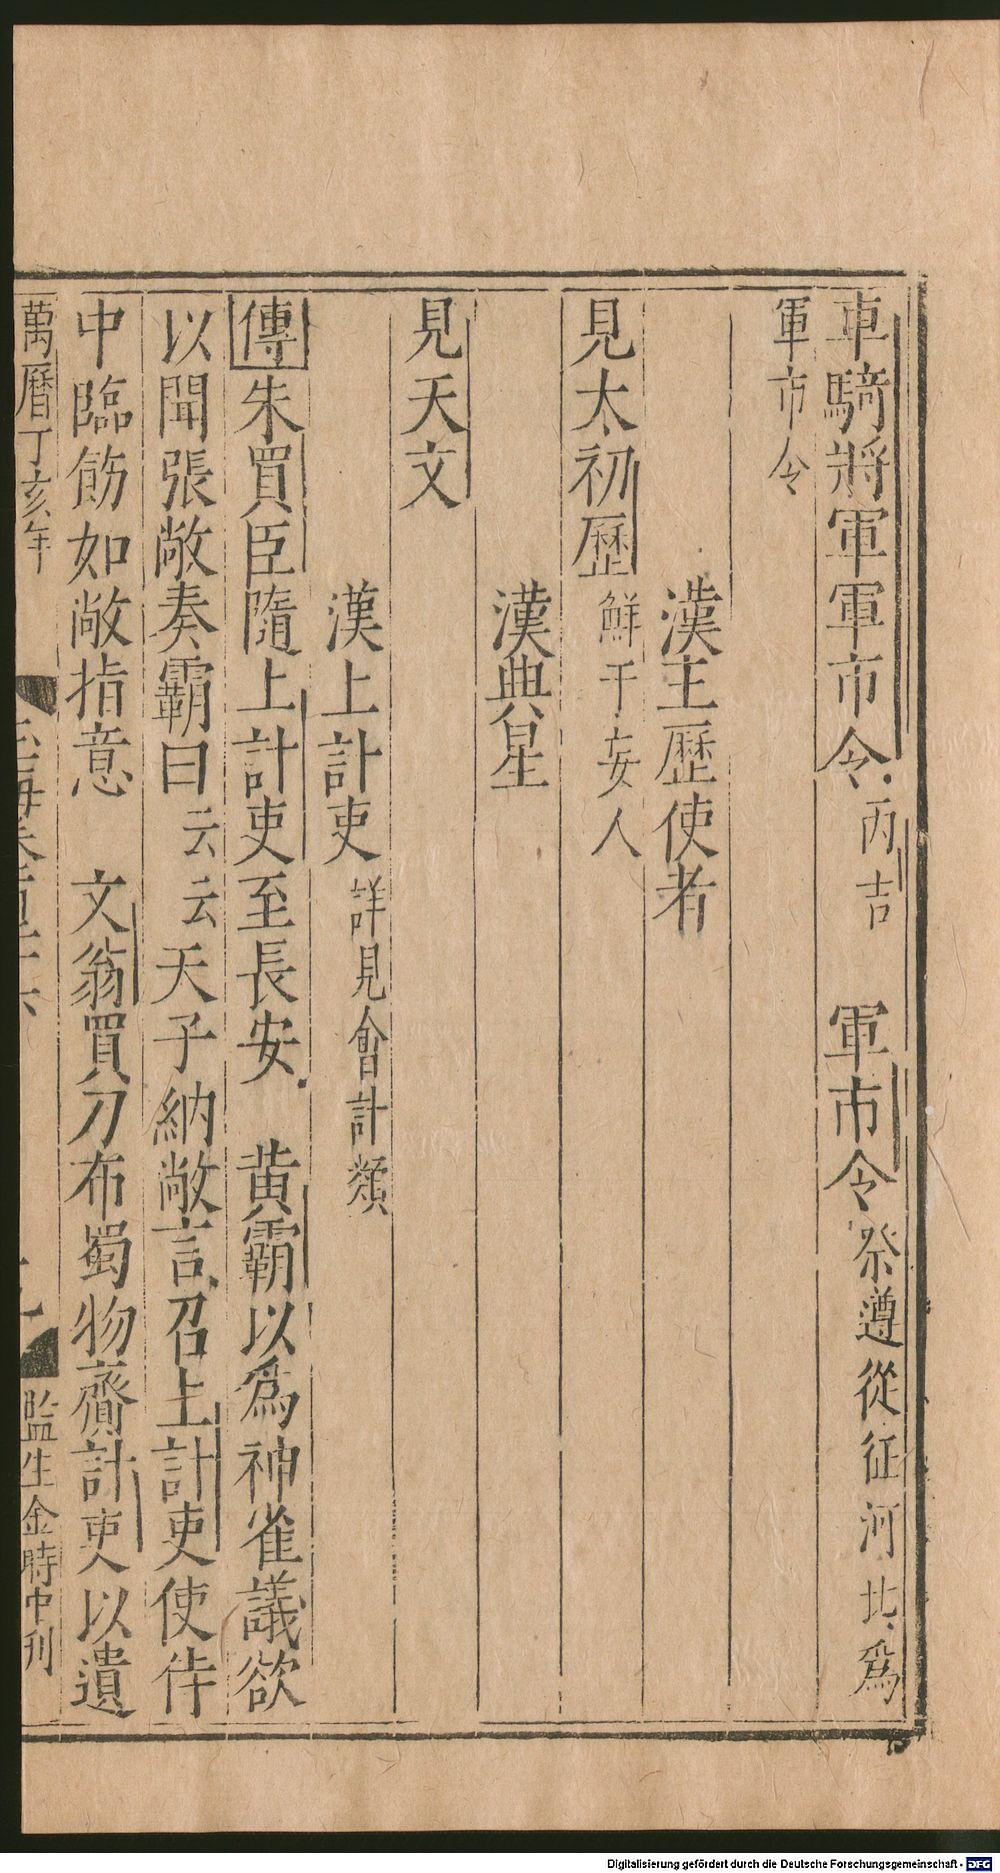 車騎將軍軍市令丙吉 軍市令祭遵從征河北爲
軍市令
漢主歷使者
見太初歷鮮于妄人
漢典星
見天文
漢上計吏詳見會計類
傳朱買臣隨上計吏至長安 黃霸以爲神雀議欲
以聞張敞奏霸曰云云天子納敞言召上計吏使侍
中臨飭如敞指意 文翁買刀布蜀物齎計吏以遺
萬曆丁亥年
監生金時中刋
Digitalisierung gefördert durch die Deutsche Forschungsgemeinschaft - DFG